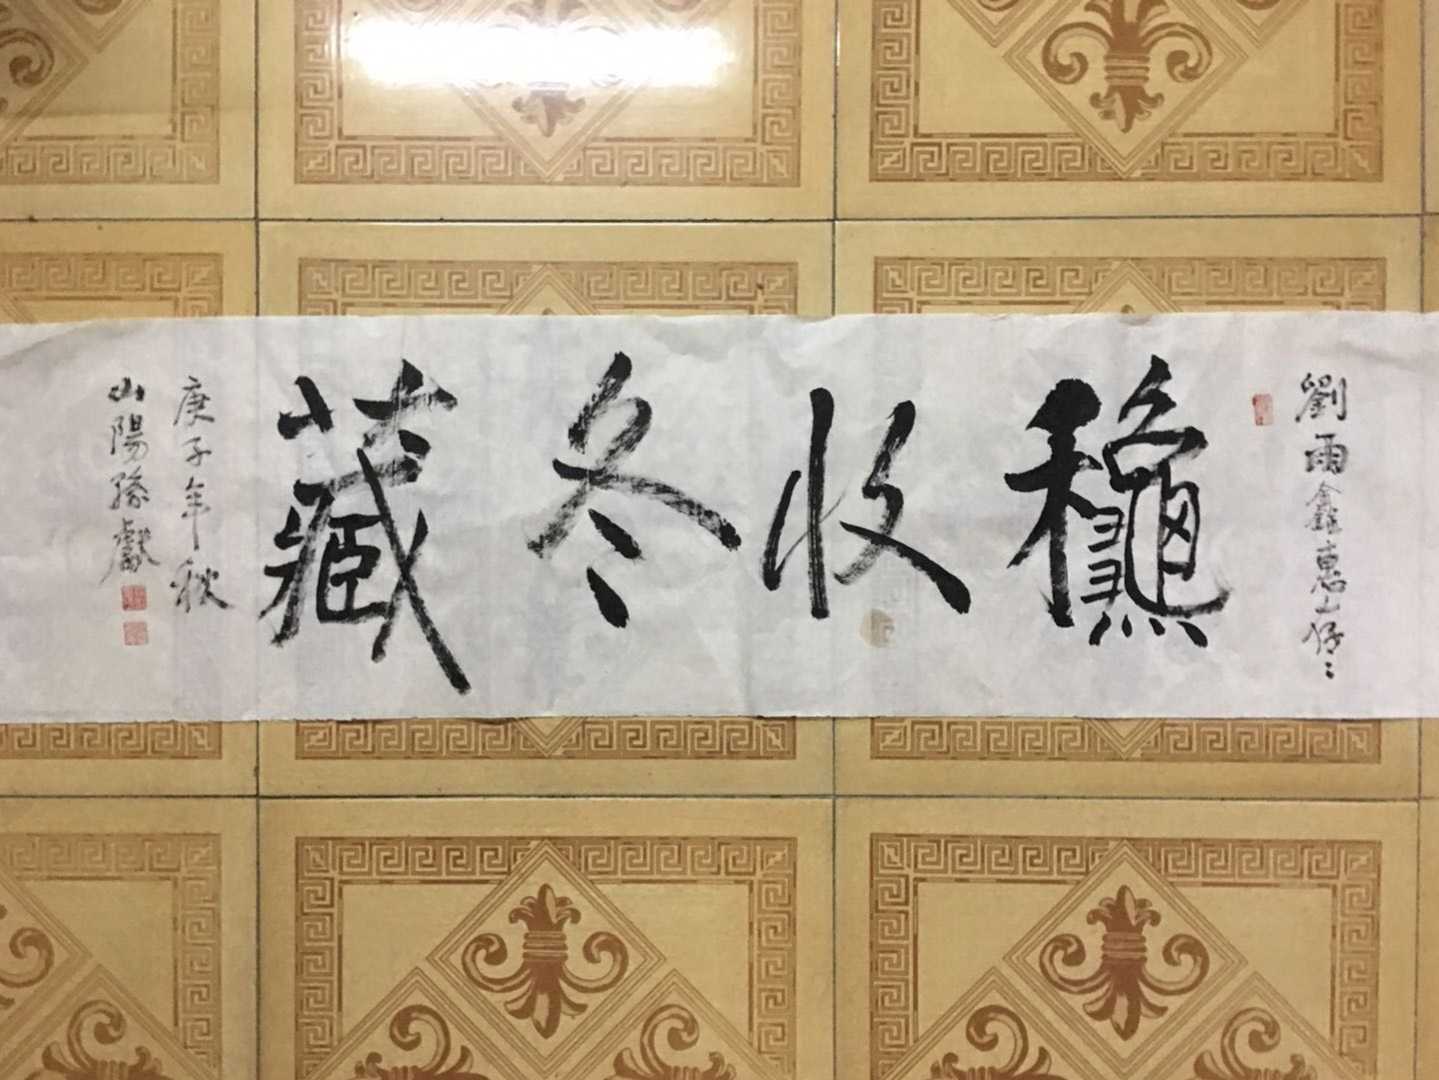 劉雨鑫惠
龝收冬藏
庚子年秋
山陽孫獻